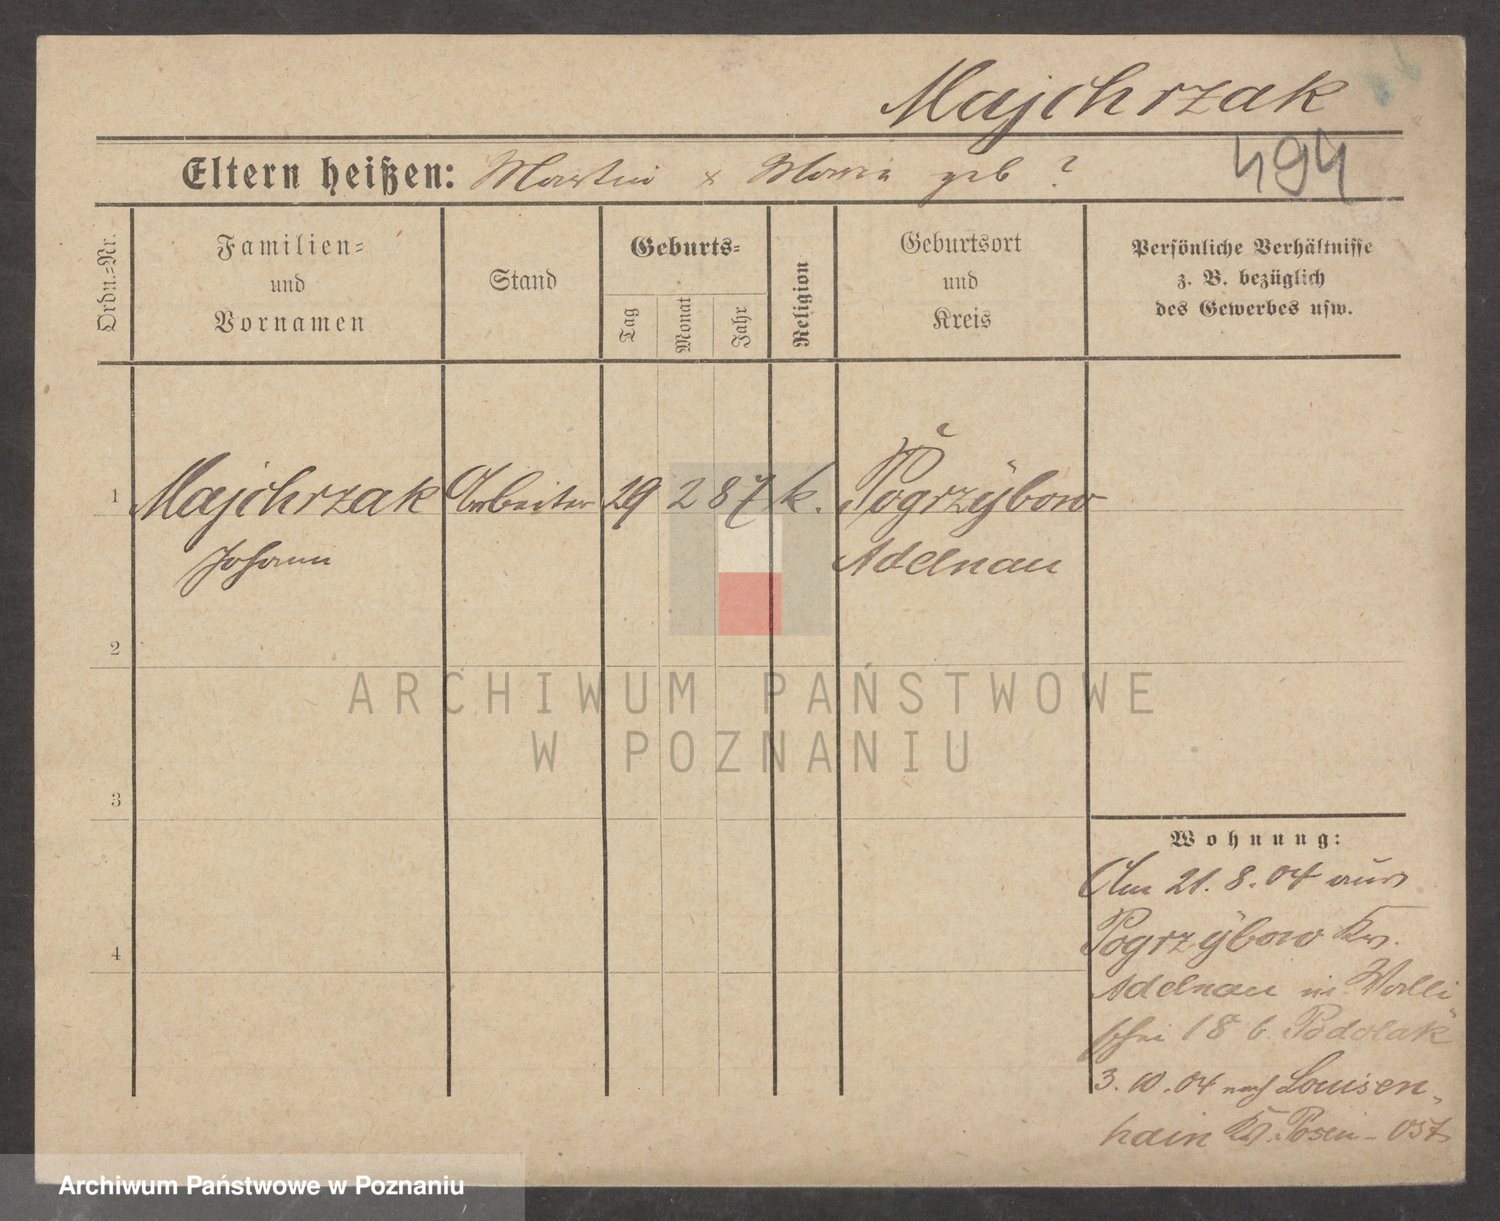 Majchrzak
Eltern heißen: Martin x Maria geb ?
494
Ordn.=Nr.
Familien=
und
Vornamen
Stand
Geburts=
Tag
Monat
Jahr
Religion
Geburtsort
und
Kreis
Persönliche Verhältnisse
z. B. bezüglich
des Gewerbes usw.
1 Majchrzak Arbeiter 29 2 87 k. Pogrzybow
Johann Adelnau
2
3
4
Wohnung:
Am 21.8.04 aus
Pogrzybow Kr.
Adelnau in Walli
schei 18 b. Podolak
3.10.04 nach Louisen-
hain Kr. Posen-Ost
ARCHIWUM PAŃSTWOWE
W POZNANIU
Archiwum Państwowe w Poznaniu